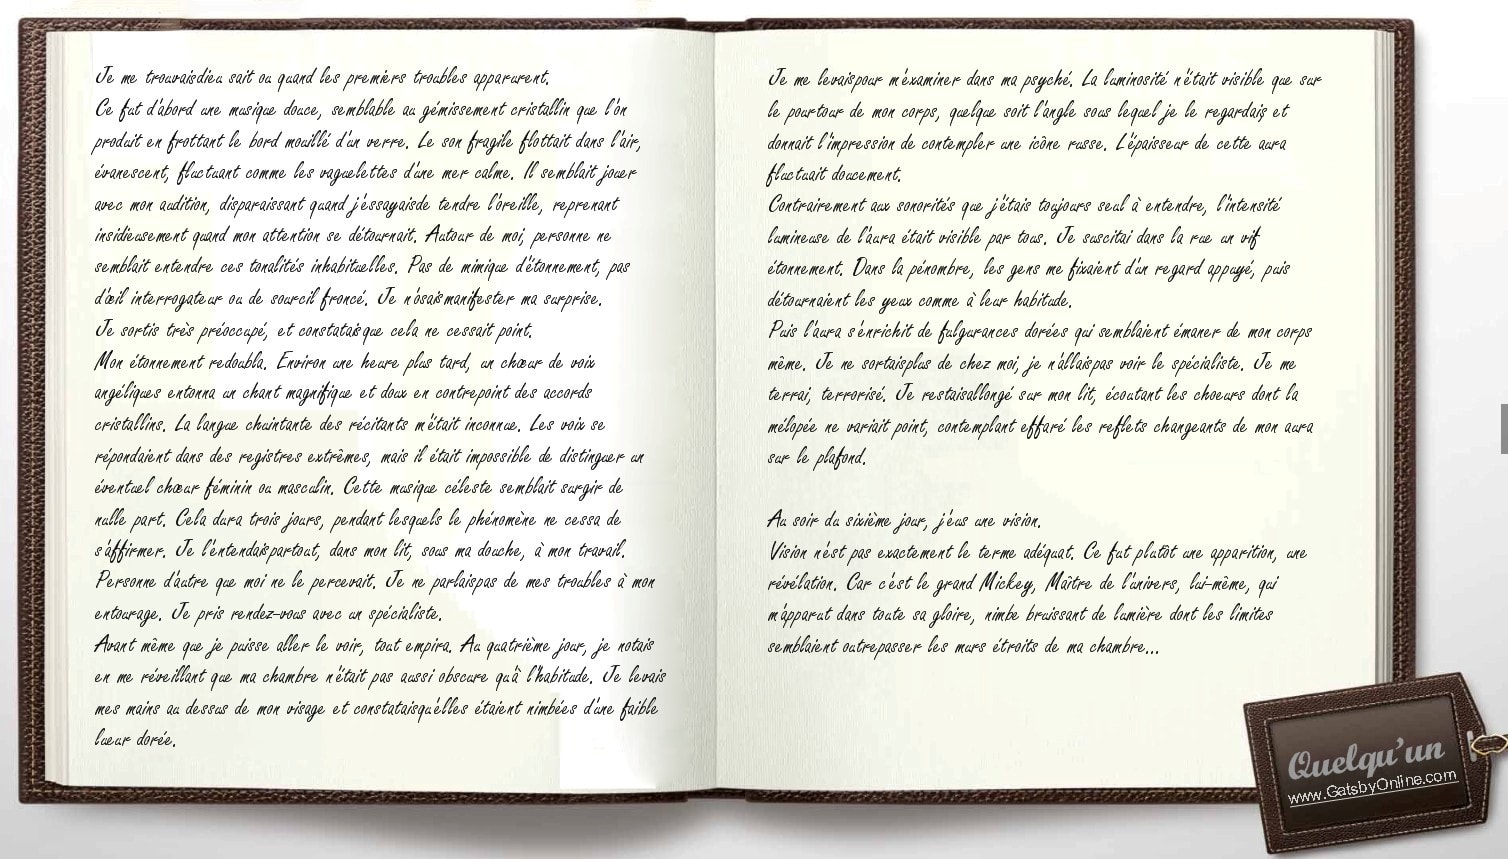 Je me trouvaisdieu sait ou quand les premiers troubles apparurent.
Ce fut d'abord une musique douce, semblable au gémissement cristallin que l'on
produit en frottant le bord mouillé d'un verre. Le son fragile flottait dans l'air,
évanescent, fluctuant comme les vaguelettes d'une mer calme. Il semblait jouer
avec mon audition, disparaissant quand j'essayaisde tendre l'oreille, reprenant
insidieusement quand mon attention se détournait. Autour de moi, personne ne
semblait entendre ces tonalités inhabituelles. Pas de mimique d'étonnement, pas
d'œil interrogateur ou de sourcil froncé. Je n'osaismanifester ma surprise.
Je sortis très préoccupé, et constataisque cela ne cessait point.
Mon étonnement redoubla. Environ une heure plus tard, un chœur de voix
angéliques entonna un chant magnifique et doux en contrepoint des accords
cristallins. La langue chuintante des récitants m'était inconnue. Les voix se
répondaient dans des registres extrêmes, mais il était impossible de distinguer un
éventuel chœur féminin ou masculin. Cette musique céleste semblait surgir de
nulle part. Cela dura trois jours, pendant lesquels le phénomène ne cessa de
s'affirmer. Je l'entendaispartout, dans mon lit, sous ma douche, à mon travail.
Personne d'autre que moi ne le percevait. Je ne parlaispas de mes troubles à mon
entourage. Je pris rendez-vous avec un spécialiste.
Avant même que je puisse aller le voir, tout empira. Au quatrième jour, je notais
en me réveillant que ma chambre n'était pas aussi obscure qu'à l'habitude. Je levais
mes mains au dessus de mon visage et constataisqu'elles étaient nimbées d'une faible
lueur dorée.
Je me levaispour m'examiner dans ma psyché. La luminosité n'était visible que sur
le pourtour de mon corps, quelque soit l'angle sous lequel je le regardais et
donnait l'impression de contempler une icône russe. L'épaisseur de cette aura
fluctuait doucement.
Contrairement aux sonorités que j'étais toujours seul à entendre, l'intensité
lumineuse de l'aura était visible par tous. Je suscitai dans la rue un vif
étonnement. Dans la pénombre, les gens me fixaient d'un regard appuyé, puis
détournaient les yeux comme à leur habitude.
Puis l'aura s'enrichit de fulgurances dorées qui semblaient émaner de mon corps
même. Je ne sortaisplus de chez moi, je n'allaispas voir le spécialiste. Je me
terrai, terrorisé. Je restaisallongé sur mon lit, écoutant les choeurs dont la
mélopée ne variait point, contemplant effaré les reflets changeants de mon aura
sur le plafond.
Au soir du sixième jour, j'eus une vision.
Vision n'est pas exactement le terme adéquat. Ce fut plutôt une apparition, une
révélation. Car c'est le grand Mickey, Maître de l'univers, lui-même, qui
m'apparut dans toute sa gloire, nimbe bruissant de lumière dont les limites
semblaient outrepasser les murs étroits de ma chambre...
Quelqu'un
www.GatsbyOnline.com